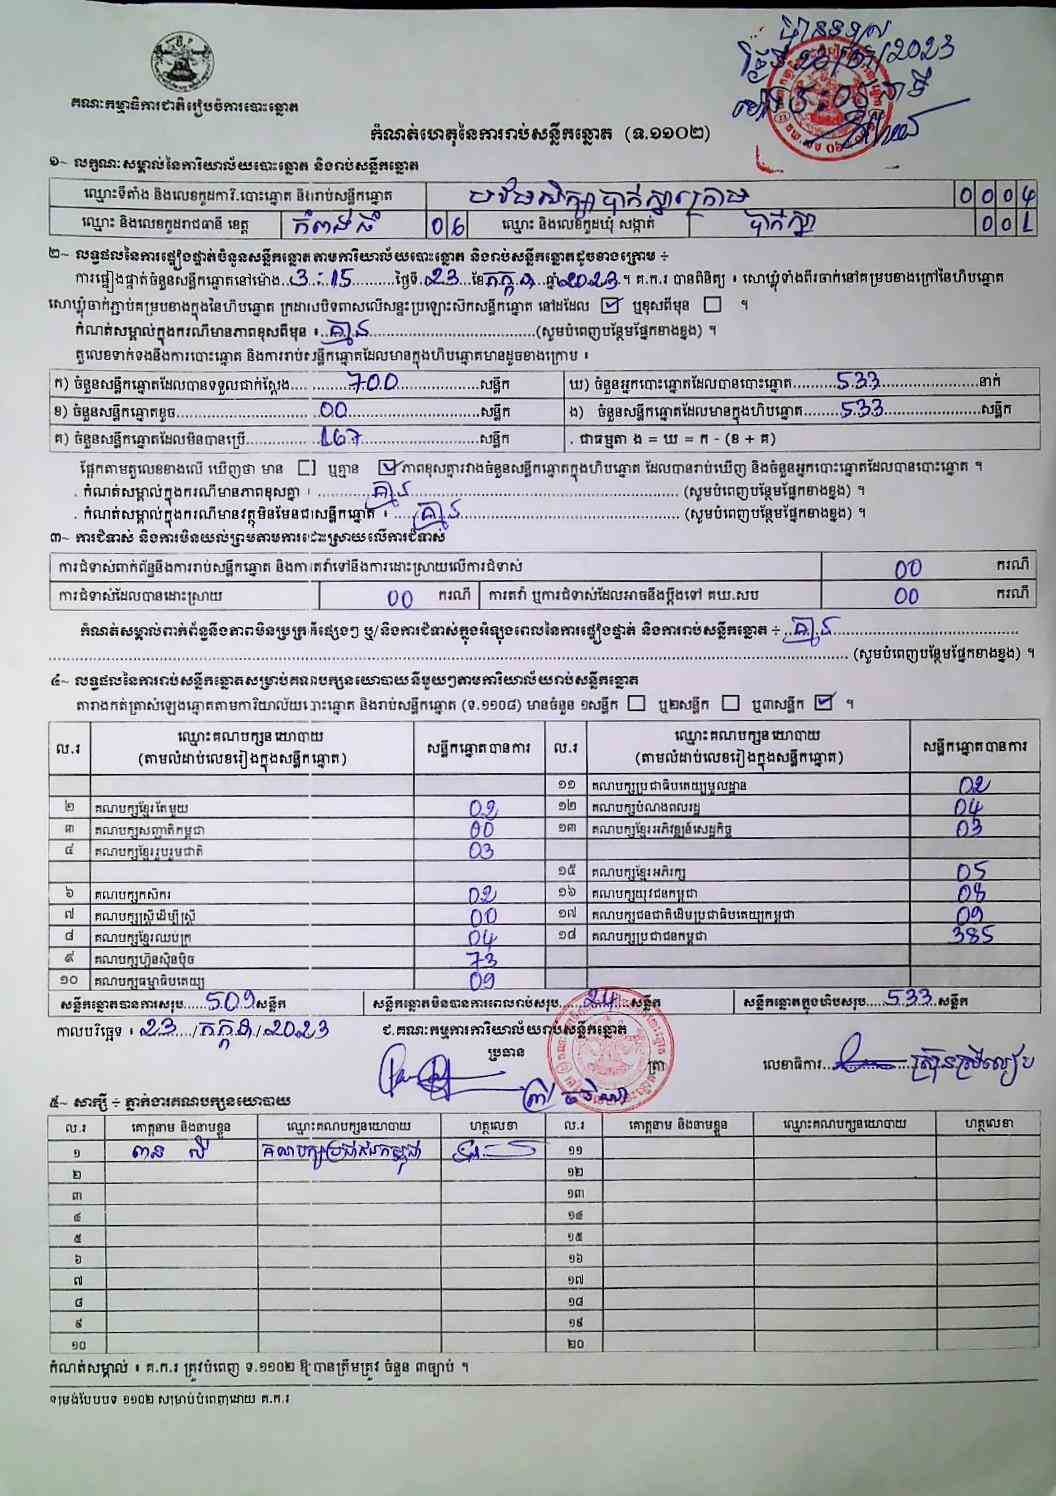 គណៈកម្មាធិការជាតិរៀបចំការបោះឆ្នោត
កំណត់ហេតុនៃការរាប់សន្លឹកឆ្នោត (ទ.១១០២)
១~ លក្ខណៈសម្គាល់នៃការិយាល័យបោះឆ្នោត និងរាប់សន្លឹកឆ្នោត
ឈ្មោះទីតាំង និងលេខកូដការិ.បោះឆ្នោត និងរាប់សន្លឹកឆ្នោត 0004
ឈ្មោះ និងលេខកូដរាជធានី ខេត្ត កំពង់ធំ 06 ឈ្មោះ និងលេខកូដឃុំ សង្កាត់
២~ លទ្ធផលនៃការផ្ទៀងផ្ទាត់ចំនួនសន្លឹកឆ្នោត តាមការិយាល័យបោះឆ្នោត និងរាប់សន្លឹកឆ្នោតដូចខាងក្រោម ÷
ការផ្ទៀងផ្ទាត់ចំនួនសន្លឹកឆ្នោតនៅម៉ោង 3:15 ថ្ងៃទី 23 ខែ កក្កដា ឆ្នាំ 2023 ។ គ.ក.រ បានពិនិត្យ ៖ សោឃ្មុំទាំងពីរចាក់នៅគម្របខាងក្រៅនៃហិបឆ្នោត
សោឃ្មុំចាក់ភ្ជាប់គម្របខាងក្នុងនៃហិបឆ្នោត ក្រដាសបិទពាសលើសន្ទះប្រឡោះស៊កសន្លឹកឆ្នោត នៅដដែល ☑ ឬខុសពីមុន ☐ ។
កំណត់សម្គាល់ក្នុងករណីមានភាពខុសពីមុន ៖ គ្មាន (សូមបំពេញបន្ថែមផ្នែកខាងខ្នង) ។
តួលេខទាក់ទងនឹងការបោះឆ្នោត និងការរាប់សន្លឹកឆ្នោតដែលមានក្នុងហិបឆ្នោតមានដូចខាងក្រោម ៖
ក) ចំនួនសន្លឹកឆ្នោតដែលបានទទួលជាក់ស្តែង 700 សន្លឹក ឃ) ចំនួនអ្នកបោះឆ្នោតដែលបានបោះឆ្នោត 533 នាក់
ខ) ចំនួនសន្លឹកឆ្នោតខូច 00 សន្លឹក ង) ចំនួនសន្លឹកឆ្នោតដែលមានក្នុងហិបឆ្នោត 533 សន្លឹក
គ) ចំនួនសន្លឹកឆ្នោតដែលមិនបានប្រើ 167 សន្លឹក . ជាធម្មតា ង = ឃ = ក - (ខ + គ)
ផ្អែកតាមតួលេខខាងលើ ឃើញថា មាន ☐ ឬគ្មាន ☑ ភាពខុសគ្នារវាងចំនួនសន្លឹកឆ្នោតក្នុងហិបឆ្នោត ដែលបានរាប់ឃើញ និងចំនួនអ្នកបោះឆ្នោតដែលបានបោះឆ្នោត ។
. កំណត់សម្គាល់ក្នុងករណីមានភាពខុសគ្នា : គ្មាន (សូមបំពេញបន្ថែមផ្នែកខាងខ្នង) ។
. កំណត់សម្គាល់ក្នុងករណីមានវត្ថុមិនមែនជាសន្លឹកឆ្នោត : គ្មាន (សូមបំពេញបន្ថែមផ្នែកខាងខ្នង) ។
៣~ ការជំទាស់ និងការមិនយល់ព្រមតាមការដោះស្រាយលើការជំទាស់
ការជំទាស់ពាក់ព័ន្ធនឹងការរាប់សន្លឹកឆ្នោត និងការតវ៉ាទៅនឹងការដោះស្រាយលើការជំទាស់ 00 ករណី
ការជំទាស់ដែលបានដោះស្រាយ 00 ករណី ការតវ៉ា ឬការជំទាស់ដែលអាចនឹងប្តឹងទៅ គឃ.សប 00 ករណី
កំណត់សម្គាល់ពាក់ព័ន្ធនឹងភាពមិនប្រក្រតីផ្សេងៗ ឬ/និងការជំទាស់ក្នុងអំឡុងពេលនៃការផ្ទៀងផ្ទាត់ និងការរាប់សន្លឹកឆ្នោត ÷ គ្មាន
(សូមបំពេញបន្ថែមផ្នែកខាងខ្នង) ។
៤~ លទ្ធផលនៃការរាប់សន្លឹកឆ្នោតសម្រាប់គណបក្សនយោបាយនីមួយៗតាមការិយាល័យរាប់សន្លឹកឆ្នោត
តារាងកត់ត្រាសំឡេងឆ្នោតតាមការិយាល័យបោះឆ្នោត និងរាប់សន្លឹកឆ្នោត (ទ.១១០៨) មានចំនួន ១សន្លឹក ☐ ឬ២សន្លឹក ☐ ឬ៣សន្លឹក ☑ ។
ល.រ ឈ្មោះគណបក្សនយោបាយ (តាមលំដាប់លេខរៀងក្នុងសន្លឹកឆ្នោត) សន្លឹកឆ្នោតបានការ ល.រ ឈ្មោះគណបក្សនយោបាយ (តាមលំដាប់លេខរៀងក្នុងសន្លឹកឆ្នោត) សន្លឹកឆ្នោតបានការ
១១ គណបក្សប្រជាធិបតេយ្យមូលដ្ឋាន 02
២ គណបក្សខ្មែរតែមួយ 02 ១២ គណបក្សបំណងពលរដ្ឋ 04
៣ គណបក្សសញ្ជាតិកម្ពុជា 00 ១៣ គណបក្សខ្មែរអភិវឌ្ឍន៍សេដ្ឋកិច្ច 03
៤ គណបក្សខ្មែររួបរួមជាតិ 03
១៥ គណបក្សខ្មែរអភិរក្ស 05
៦ គណបក្សកសិករ 02 ១៦ គណបក្សយុវជនកម្ពុជា 08
៧ គណបក្សស្ត្រីដើម្បីស្ត្រី 00 ១៧ គណបក្សជនជាតិដើមប្រជាធិបតេយ្យកម្ពុជា 09
៨ គណបក្សខ្មែរឈប់ក្រ 04 ១៨ គណបក្សប្រជាជនកម្ពុជា 385
៩ គណបក្សហ្វ៊ុនស៊ិនប៉ិច 73
១០ គណបក្សធម្មាធិបតេយ្យ 09
សន្លឹកឆ្នោតបានការសរុប 509 សន្លឹក សន្លឹកឆ្នោតមិនបានការពេលរាប់សរុប 24 សន្លឹក សន្លឹកឆ្នោតក្នុងហិបសរុប 533 សន្លឹក
កាលបរិច្ឆេទ ៖ 23 / កក្កដា / 2023 ជ.គណៈកម្មការការិយាល័យរាប់សន្លឹកឆ្នោត
ប្រធាន ត្រា លេខាធិការ
៥~ សាក្សី ÷ ភ្នាក់ងារគណបក្សនយោបាយ
ល.រ គោត្តនាម និងនាមខ្លួន ឈ្មោះគណបក្សនយោបាយ ហត្ថលេខា ល.រ គោត្តនាម និងនាមខ្លួន ឈ្មោះគណបក្សនយោបាយ ហត្ថលេខា
១ គណបក្សប្រជាជនកម្ពុជា ១១
២ ១២
៣ ១៣
៤ ១៤
៥ ១៥
៦ ១៦
៧ ១៧
៨ ១៨
៩ ១៩
១០ ២០
កំណត់សម្គាល់ ៖ គ.ក.រ ត្រូវបំពេញ ទ.១១០២ ឱ្យបានត្រឹមត្រូវ ចំនួន ៣ច្បាប់ ។
ទម្រង់បែបបទ ១១០២ សម្រាប់បំពេញដោយ គ.ក.រ